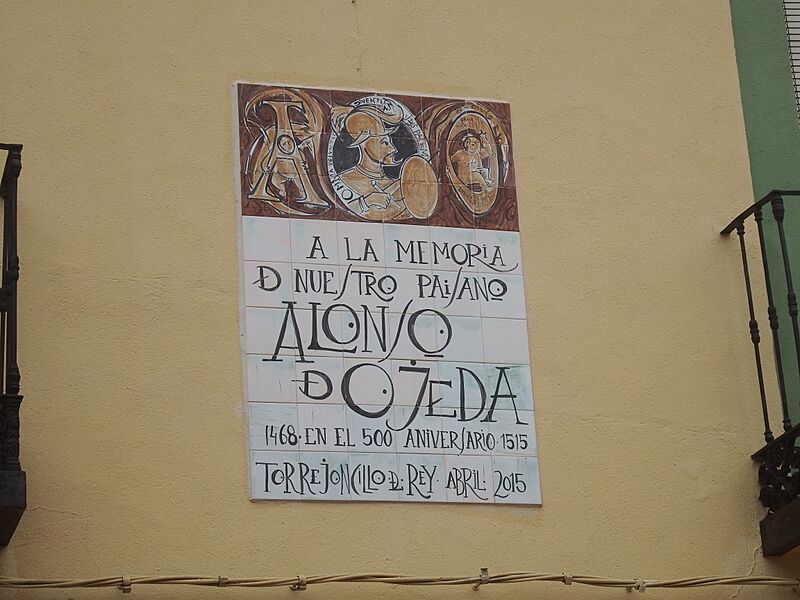 A LA MEMORIA
D NUESTRO PAISANO
ALONSO
D OJEDA
1468·EN EL 500 ANIVERSARIO·1515
TORREJONCILLO D. REY. ABRIL. 2015